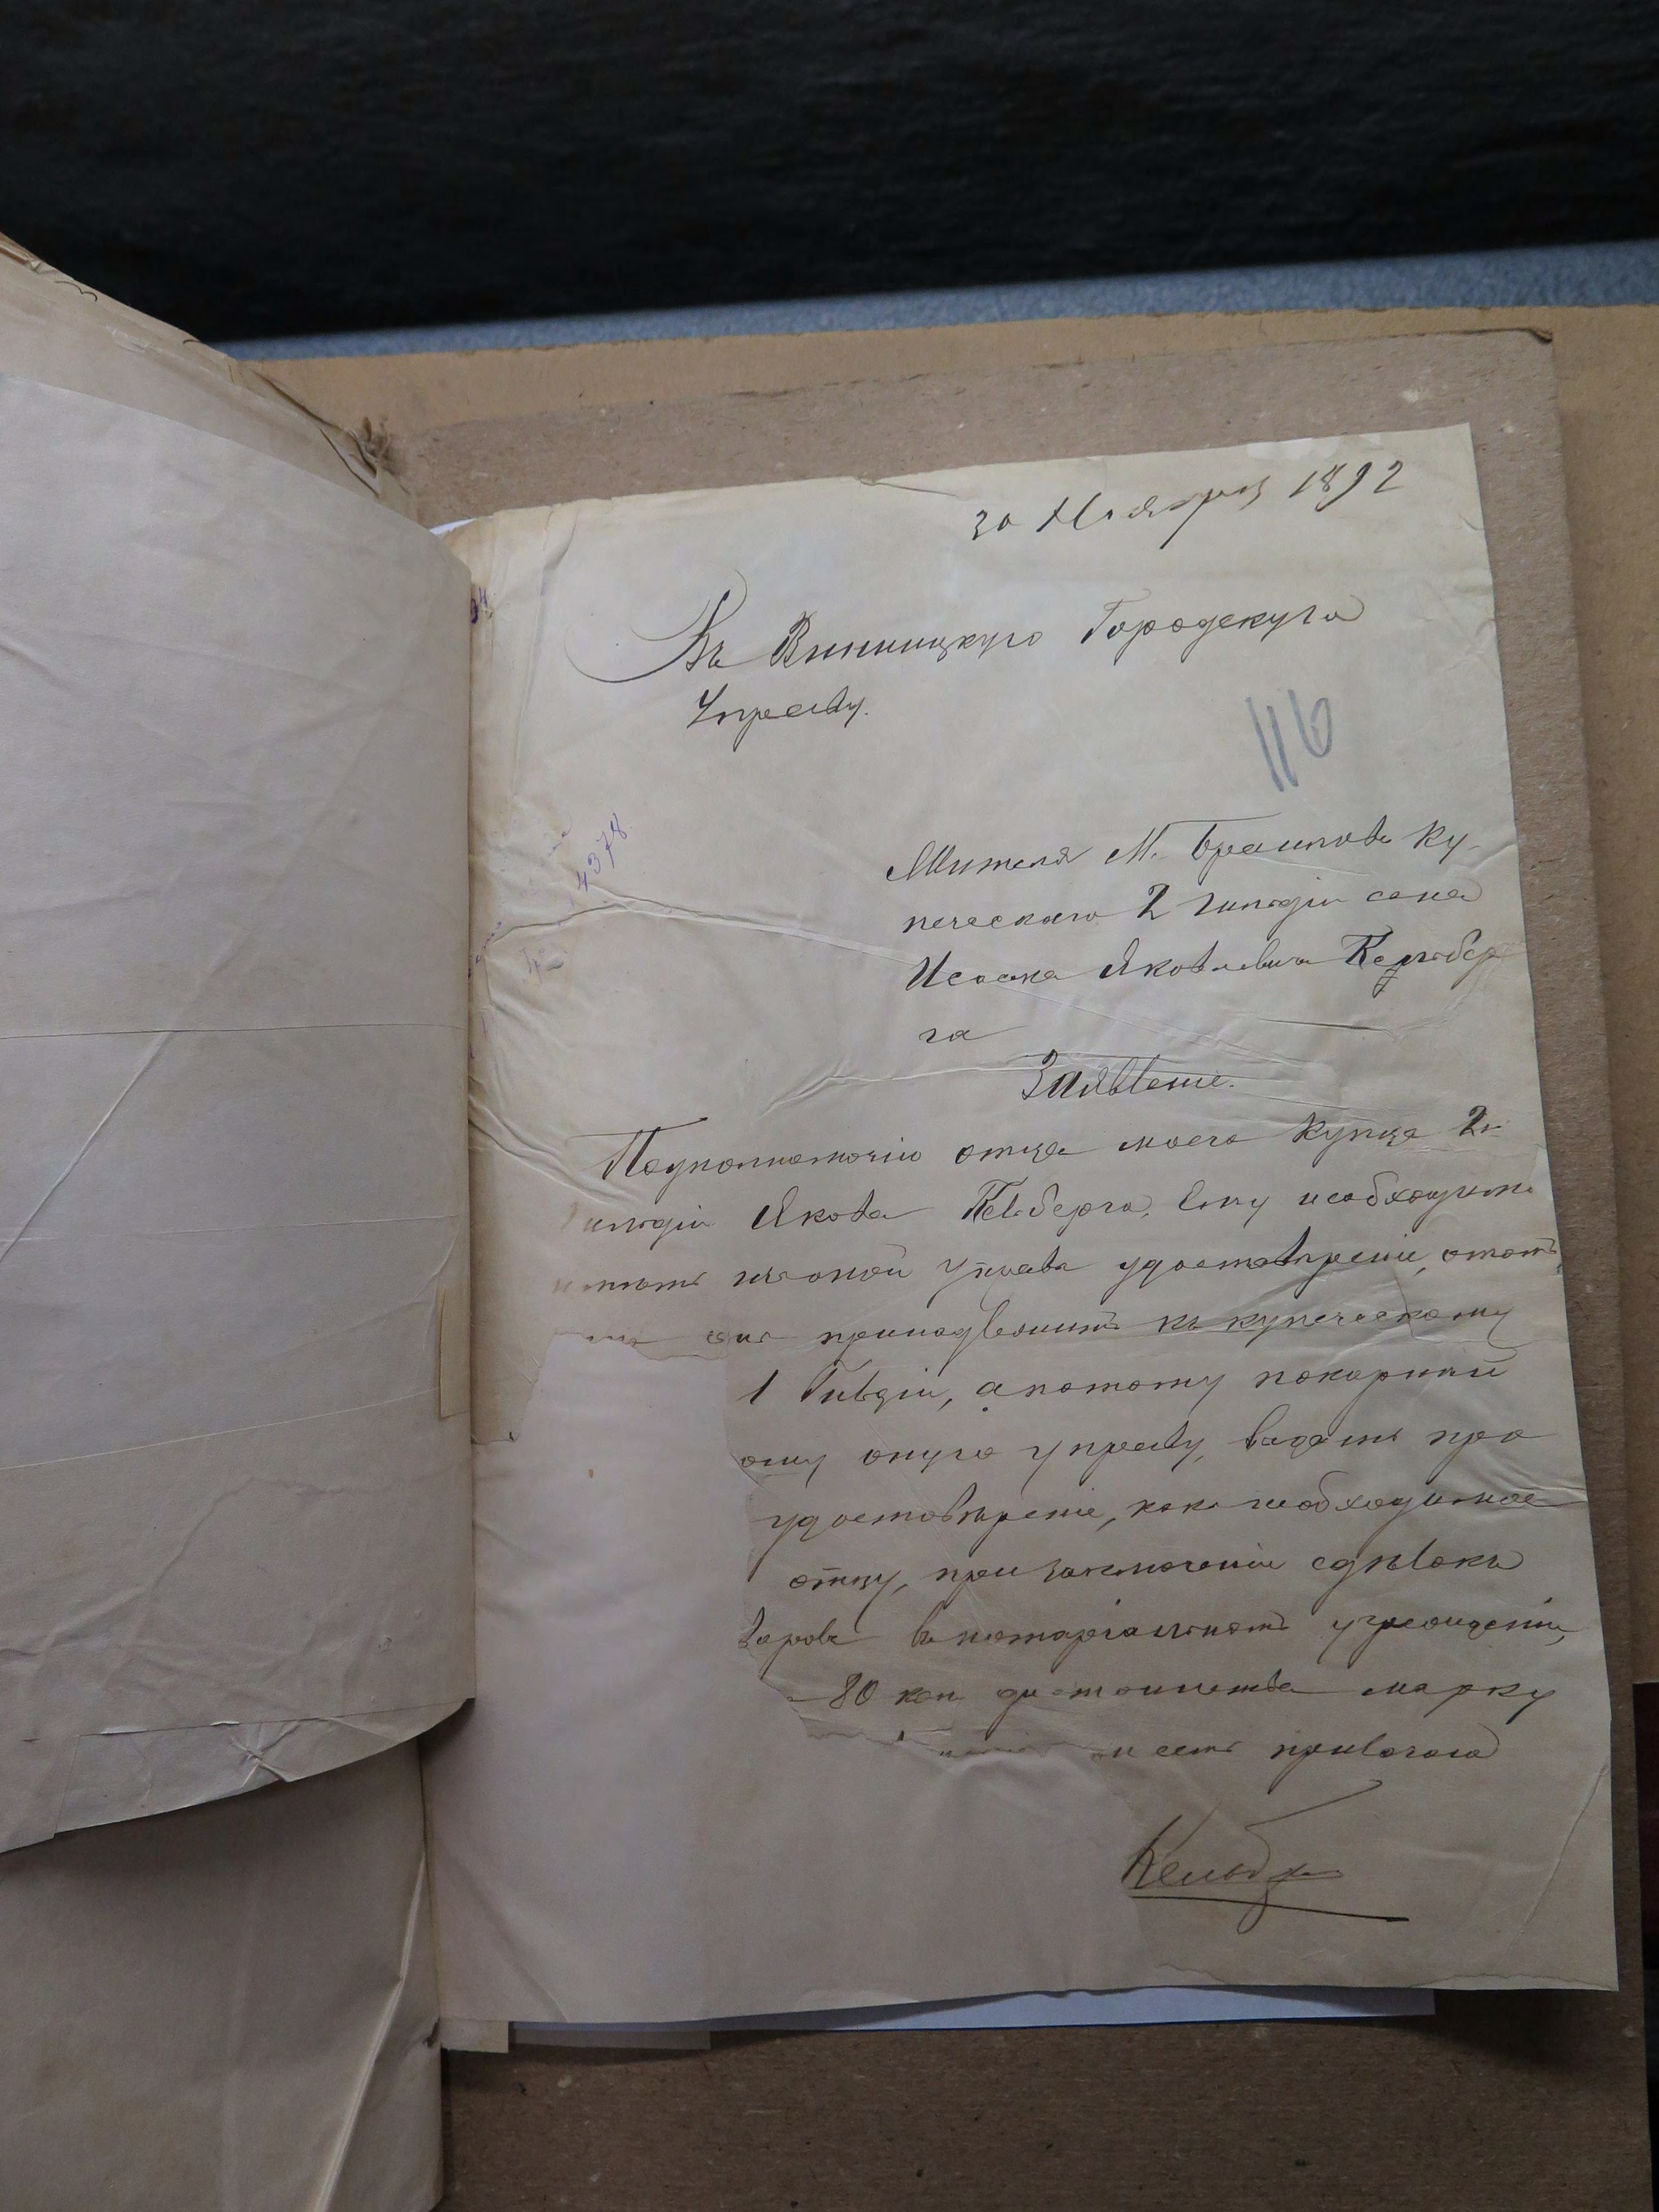 30 Ноября 1892
Въ Винницкую Городскую
Управу.
116
4378
Жителя М. Браилова Ку-
печескаго 2 гильдіи сына
Исаака Яковлевича Кельбер
га
Заявленіе.
отца моего Купца 2й
гильдіи Якова Кельберга, ему необходимо
Управы удостовѣреніе, о томъ
онъ принадлежитъ къ купеческому
1 Гильдіи, а потому покорнѣй
оную управу, выдать про
удостовѣреніе, какъ необходимое
отцу, при заключеніи сдѣлокъ
въ нотаріальномъ учрежденіи,
80 коп достоинства марку
при семъ прилагаю